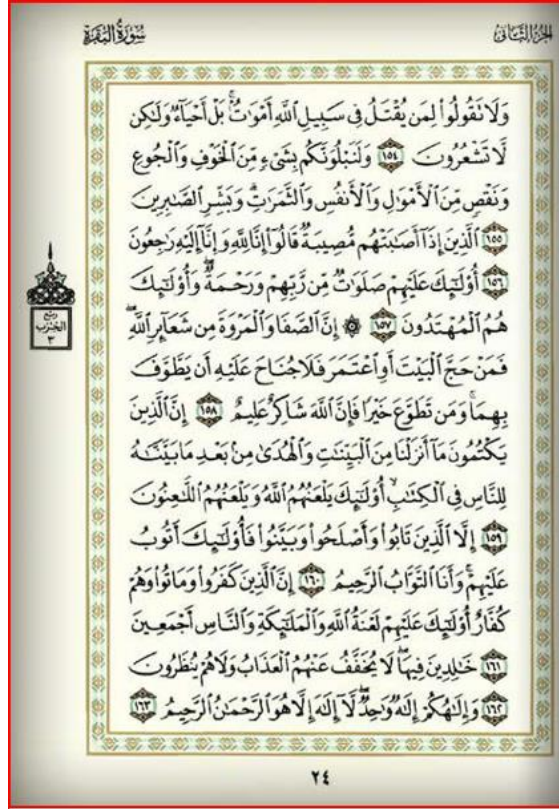 الجزء الثاني
سورة البقرة
وَلَا تَقُولُوا۟ لِمَن يُقْتَلُ فِى سَبِيلِ ٱللَّهِ أَمْوَٰتٌۢ ۚ بَلْ أَحْيَآءٌ وَلَٰكِن
لَّا تَشْعُرُونَ ١٥٤ وَلَنَبْلُوَنَّكُم بِشَىْءٍ مِّنَ ٱلْخَوْفِ وَٱلْجُوعِ
وَنَقْصٍ مِّنَ ٱلْأَمْوَٰلِ وَٱلْأَنفُسِ وَٱلثَّمَرَٰتِ ۗ وَبَشِّرِ ٱلصَّٰبِرِينَ
١٥٥ ٱلَّذِينَ إِذَآ أَصَٰبَتْهُم مُّصِيبَةٌ قَالُوٓا۟ إِنَّا لِلَّهِ وَإِنَّآ إِلَيْهِ رَٰجِعُونَ
١٥٦ أُو۟لَٰٓئِكَ عَلَيْهِمْ صَلَوَٰتٌ مِّن رَّبِّهِمْ وَرَحْمَةٌ ۖ وَأُو۟لَٰٓئِكَ
هُمُ ٱلْمُهْتَدُونَ ١٥٧ ۞ إِنَّ ٱلصَّفَا وَٱلْمَرْوَةَ مِن شَعَآئِرِ ٱللَّهِ ۖ
فَمَنْ حَجَّ ٱلْبَيْتَ أَوِ ٱعْتَمَرَ فَلَا جُنَاحَ عَلَيْهِ أَن يَطَّوَّفَ
بِهِمَا ۚ وَمَن تَطَوَّعَ خَيْرًا فَإِنَّ ٱللَّهَ شَاكِرٌ عَلِيمٌ ١٥٨ إِنَّ ٱلَّذِينَ
يَكْتُمُونَ مَآ أَنزَلْنَا مِنَ ٱلْبَيِّنَٰتِ وَٱلْهُدَىٰ مِنۢ بَعْدِ مَا بَيَّنَّٰهُ
لِلنَّاسِ فِى ٱلْكِتَٰبِ ۙ أُو۟لَٰٓئِكَ يَلْعَنُهُمُ ٱللَّهُ وَيَلْعَنُهُمُ ٱللَّٰعِنُونَ
١٥٩ إِلَّا ٱلَّذِينَ تَابُوا۟ وَأَصْلَحُوا۟ وَبَيَّنُوا۟ فَأُو۟لَٰٓئِكَ أَتُوبُ
عَلَيْهِمْ ۚ وَأَنَا ٱلتَّوَّابُ ٱلرَّحِيمُ ١٦٠ إِنَّ ٱلَّذِينَ كَفَرُوا۟ وَمَاتُوا۟ وَهُمْ
كُفَّارٌ أُو۟لَٰٓئِكَ عَلَيْهِمْ لَعْنَةُ ٱللَّهِ وَٱلْمَلَٰٓئِكَةِ وَٱلنَّاسِ أَجْمَعِينَ
١٦١ خَٰلِدِينَ فِيهَا ۖ لَا يُخَفَّفُ عَنْهُمُ ٱلْعَذَابُ وَلَا هُمْ يُنظَرُونَ
١٦٢ وَإِلَٰهُكُمْ إِلَٰهٌ وَٰحِدٌ ۖ لَّآ إِلَٰهَ إِلَّا هُوَ ٱلرَّحْمَٰنُ ٱلرَّحِيمُ ١٦٣
ربع
الحزب
٣
٢٤